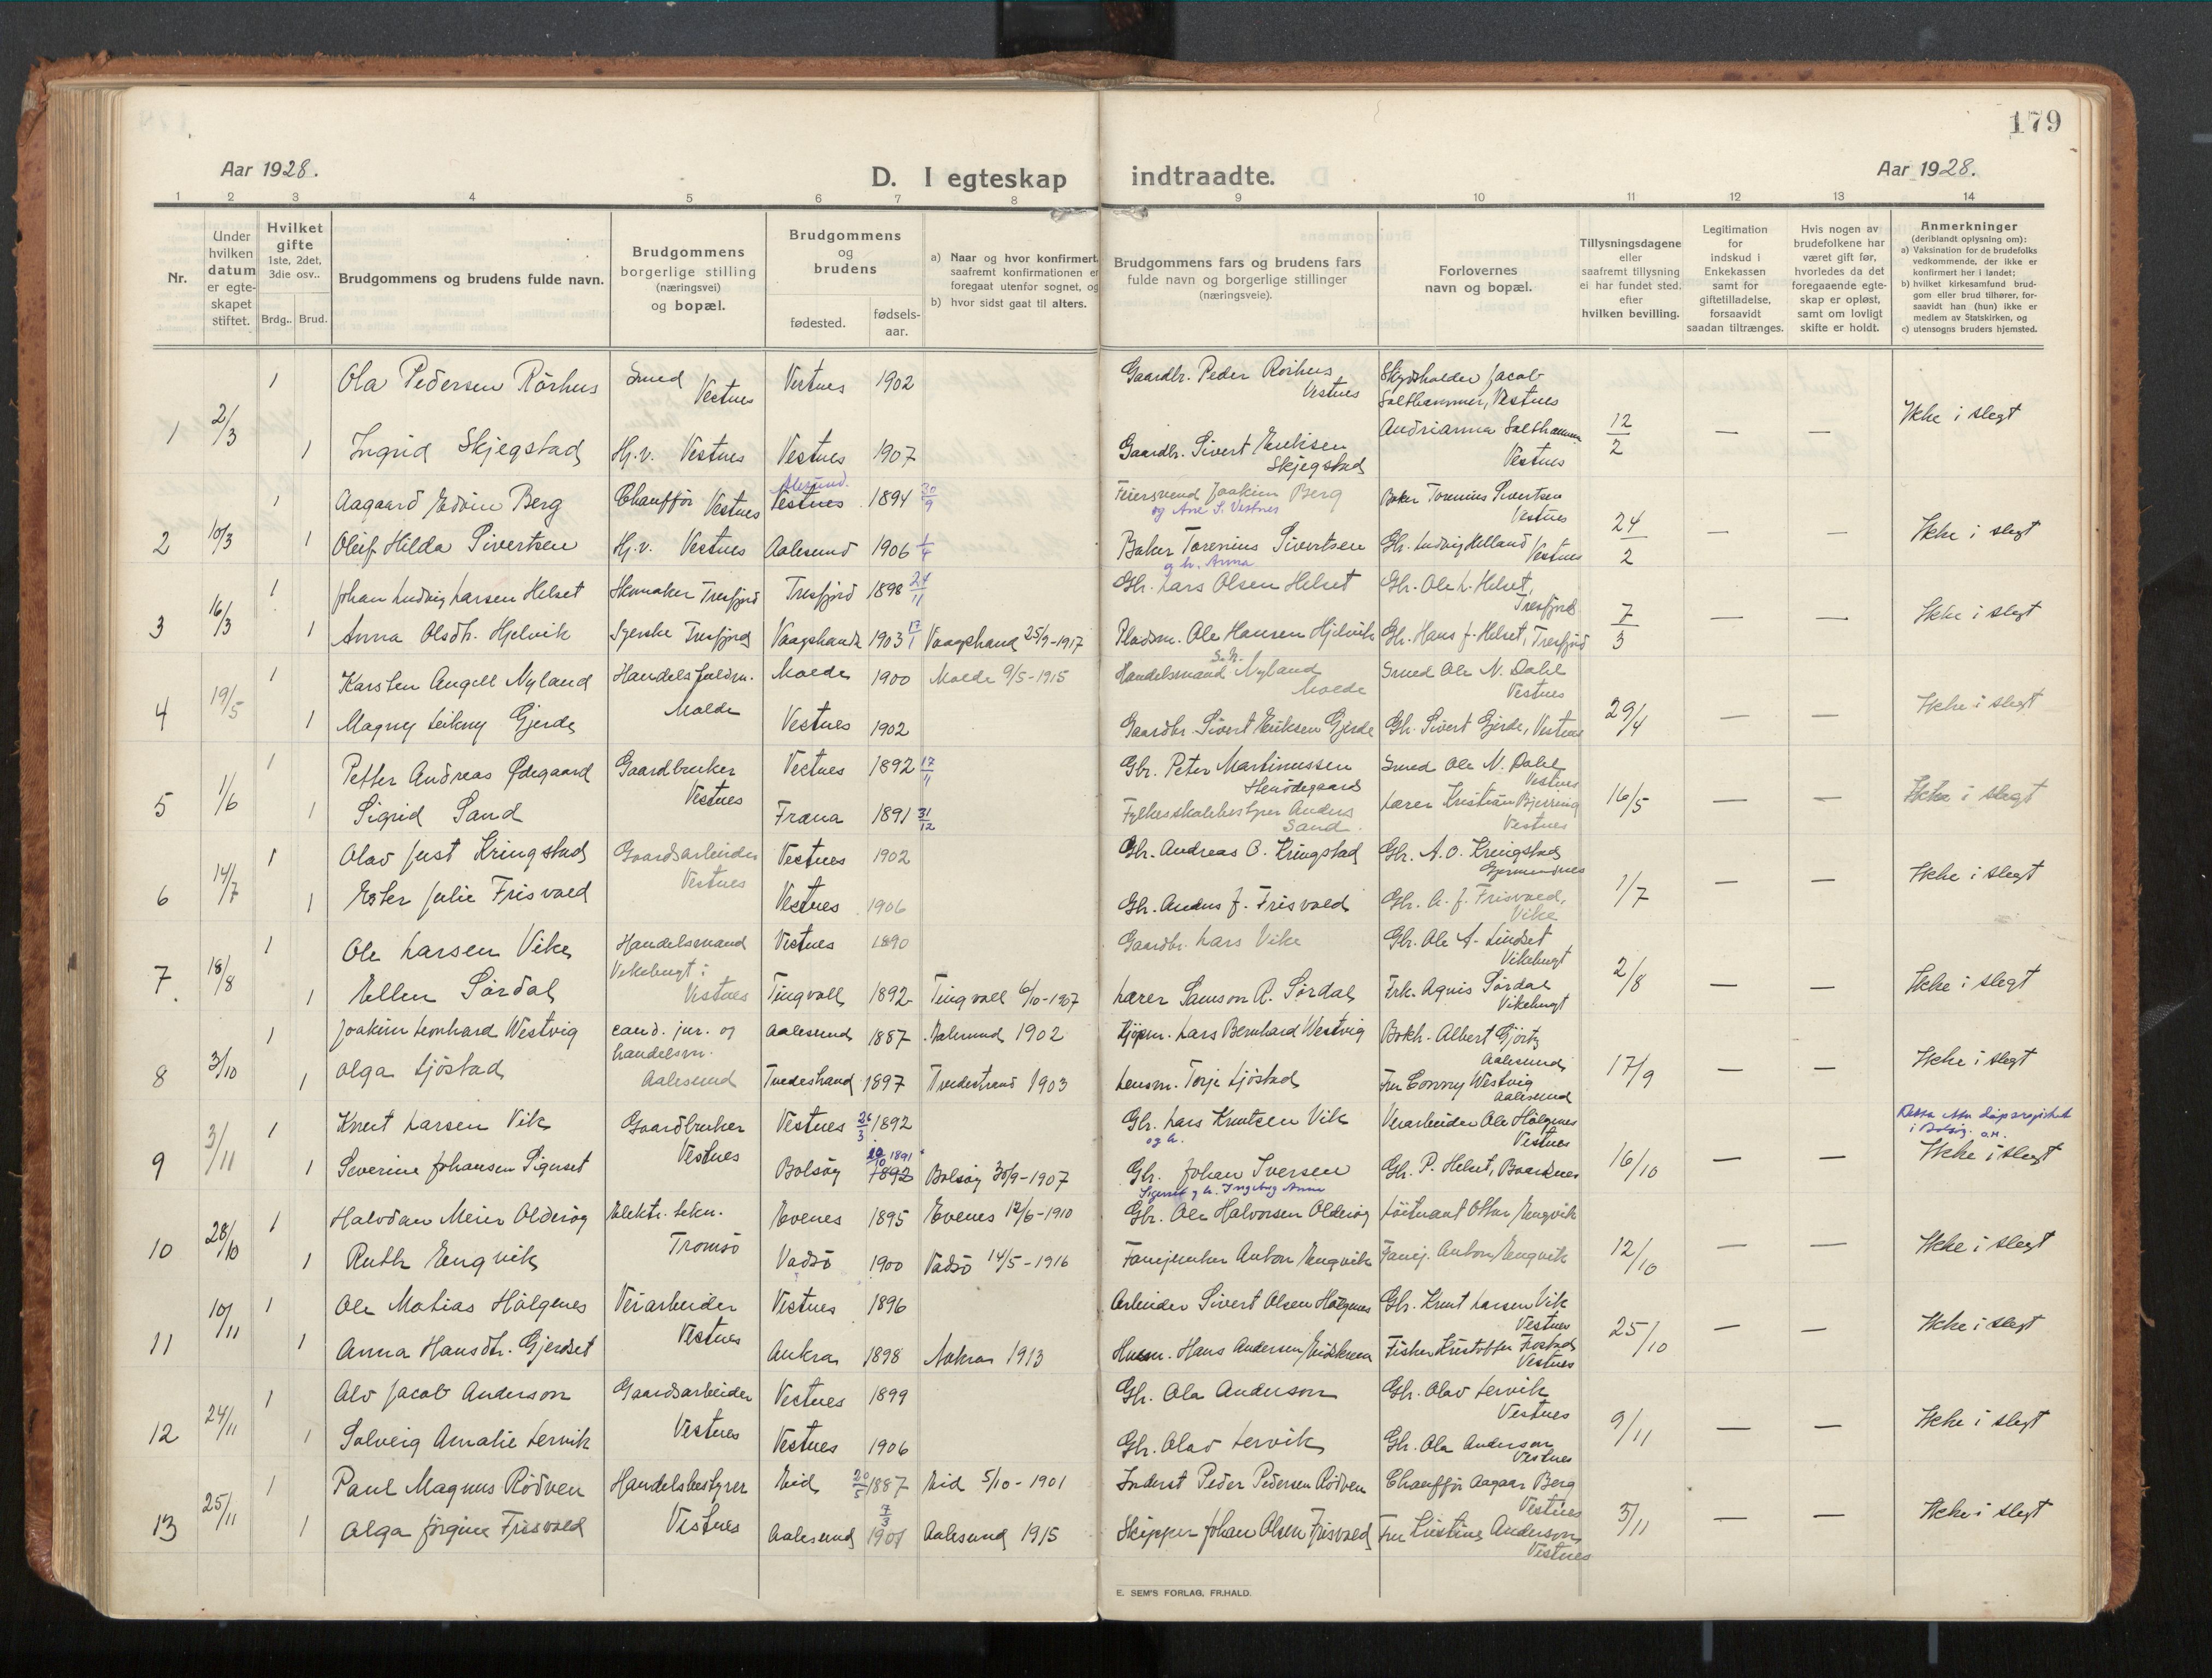 179
Aar 1928.
D. I egteskap indtraadte.
Aar 1928.
1 2 3 4 5 6 7 8 9 10 11 12 13 14
Nr.
Under hvilken datum er egteskapet stiftet.
Hvilket gifte 1ste, 2det, 3die osv..
Brdg.. Brud.
Brudgommens og brudens fulde navn.
Brudgommens borgerlige stilling (næringsvei) og bopæl.
Brudgommens og brudens
fødested. fødsels-aar.
a) Naar og hvor konfirmert, saafremt konfirmationen er foregaat utenfor sognet, og
b) hvor sidst gaat til alters.
Brudgommens fars og brudens fars fulde navn og borgerlige stillinger (næringsveie).
Forlovernes navn og bopæl.
Tillysningsdagene eller saafremt tillysning ei har fundet sted, efter hvilken bevilling.
Legitimation for indskud i Enkekassen samt for giftetilladelse, forsaavidt saadan tiltrænges.
Hvis nogen av brudefolkene har været gift før, hvorledes da det foregaaende egteskap er opløst, samt om lovligt skifte er holdt.
Anmerkninger (deriblandt oplysning om):
a) Vaksination for de brudefolks vedkommende, der ikke er konfirmert her i landet;
b) hvilket kirkesamfund brudgom eller brud tilhører, forsaavidt han (hun) ikke er medlem av Statskirken, og
c) utensogns bruders hjemsted.
1 Ola Pedersen Rörhus Smed Vestnes Vestnes 1902 Gaardbr. Peder Rörhus Vestnes Skydsholder Jacob Salthammer, Vestnes
1 2/3 12/2 — — Ikke i slegt
1 Ingrid Skjegstad Hj.v. Vestnes Vestnes 1907 Gaardbr. Sivert Eriksen Skjegstad Andrianna Salthammer Vestnes
1 Aagaard Edvin Berg Chaufför Vestnes Vestnes Alesund. 1894 30/9 Feiersvend Joakim Berg og Ane S. Vestnes Baker Torenius Sivertsen Vestnes
2 10/3 24/2 — — Ikke i slegt
1 Oleif Hilda Sivertsen Hj.v. Vestnes Aalesund 1906 1/4 Baker Torenius Sivertsen og h. Anna Gbr. Ludvig Helland Vestnes
1 Johan Ludvig Larsen Helset Skomaker Tresfjord Tresfjord 1898 24/11 Gbr. Lars Olsen Helset Gbr. Ole L. Helset, Tresfjord
3 16/3 7/3 — — Ikke i slegt
1 Anna Olsdtr. Hjelvik Syerske Tresfjord Vaagstranda 1903 Vaagstrand 25/9-1917 Pladsm. Ole Hansen Hjelvik Gbr. Hans J. Helset, Tresfjord
1 Karsten Angell Nyland Handelsfuldm. Molde Molde 1900 Molde 9/5-1915 Handelsmand Nyland Molde Smed Ole N. Dahl Vestnes
4 19/5 29/4 — — Ikke i slegt
1 Magny Leikny Gjerde Vestnes 1902 Gaardbr. Sivert Eriksen Gjerde Gbr. Sivert Gjerde, Vestnes
1 Petter Andreas Ødegaard Gaardbruker Vestnes Vestnes 1892 17/11 Gbr. Peter Martinussen Stenödegaard Smed Ole N. Dahl Vestnes
5 1/6 16/5 — — Ikke i slegt
1 Sigrid Sand Fræna 1891 31/12 Fylkesskolebestyrer Anders Sand. Lærer Kristian Bjerring Vestnes
1 Olav Just Kringstad Gaardsarbeider Vestnes Vestnes 1902 Gbr. Andreas O. Kringstad Gbr. A.O. Kringstad Gjermundnes
6 14/7 1/7 — — Ikke i slegt
1 Ester Julie Frisvold Vestnes 1906 Gbr. Anders J. Frisvold Gbr. A. J. Frisvold, Vike
1 Ole Larsen Vike Handelsmand Vikebugt i Vestnes Vestnes 1890 Gaardbr. Lars Vike Gbr. Ole A. Lindset Vikebugt
7 18/8 2/8 — — Ikke i slegt
1 Ellen Sördal Tingvoll 1892 Tingvoll 6/10-1907 Lærer Samson R. Sördal Frk. Agnis Sördal Vikebugt
1 Joakim Leonhard Westvig cand. jur. og handelsm. Aalesund Aalesund 1887 Aalesund 1902 Kjöpm. Lars Bernhard Westvig Bokh. Albert Gjörtz Aalesund
8 3/10 17/9 — — Ikke i slegt
1 Olga Ljöstad Tvedestrand 1897 Tvedestrand 1903 Lensm. Torje Ljöstad Fru Conny Westvig Aalesund
1 Knut Larsen Vik Gaardbruker Vestnes Vestnes 26/3 1892 Gbr. Lars Knutsen Vik og h. Veiarbeider Ole Hölgenes Vestnes
9 3/11 16/10 — — Ikke i slegt
1 Severine Johansen Sigerset Bolsöy 1892 1891 Bolsöy 30/9-1907 Gbr. Johan Iversen Sigerset og h. Ingeborg Anna Gbr. P. Helset, Baardsnes
1 Halvdan Meier Olderög Elektr. tekn. Tromsö Evenes 1895 Evenes 12/6-1910 Gbr. Ole Halvorsen Olderög Löitnant Ottar Engvik
10 28/10 12/10 — — Ikke i slegt
1 Ruth Engvik Vadsö 1900 Vadsö 14/5-1916 Fanejunker Anton Engvik Fanej. Anton Engvik
1 Ole Matias Hölgenes Veiarbeider Vestnes Vestnes 1896 Arbeider Sivert Olsen Hölgenes Gbr. Knut Larsen Vik Vestnes
11 10/11 25/10 — — Ikke i slegt
1 Anna Hansdtr. Gjerdset Aukra 1898 Aukra 1913 Husm. Hans Andersen Eidskrem Fisker Kristoffer Frostad Vestnes
1 Alv Jacob Anderson Gaardsarbeider Vestnes Vestnes 1899 Gbr. Ola Anderson Gbr. Olav Lervik Vestnes
12 24/11 9/11 — — Ikke i slegt
1 Solveig Amalie Lervik Vestnes 1906 Gbr. Olav Lervik Gbr. Ola Anderson Vestnes
1 Paul Magnus Rödven Handelsbestyrer Vestnes Eid 20/5 1887 Eid 5/10-1901 Inderst Peder Pedersen Rödven Chaufför Aagaar Berg Vestnes
13 25/11 3/11 — — Ikke i slegt
1 Olga Jörgine Frisvold Aalesund 7/3 1901 Aalesund 1915 Skipper Johan Olsen Frisvold Fru Kristine Anderson Vestnes
E. SEM'S FORLAG, FR.HALD.